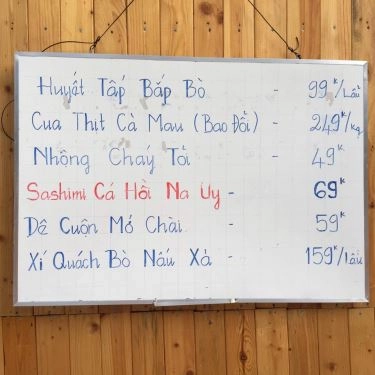 Huyết Tấp Bắp Bò - 99k/Lẩu
Cua Thịt Cà Mau (Bao Đổi) - 249k/kg
Nhộng Cháy Tỏi - 49k
Sashimi Cá Hồi Na Uy - 69k
Dê Cuộn Mỡ Chài - 59k
Xí Quách Bò Nấu Xả - 159k/lẩu